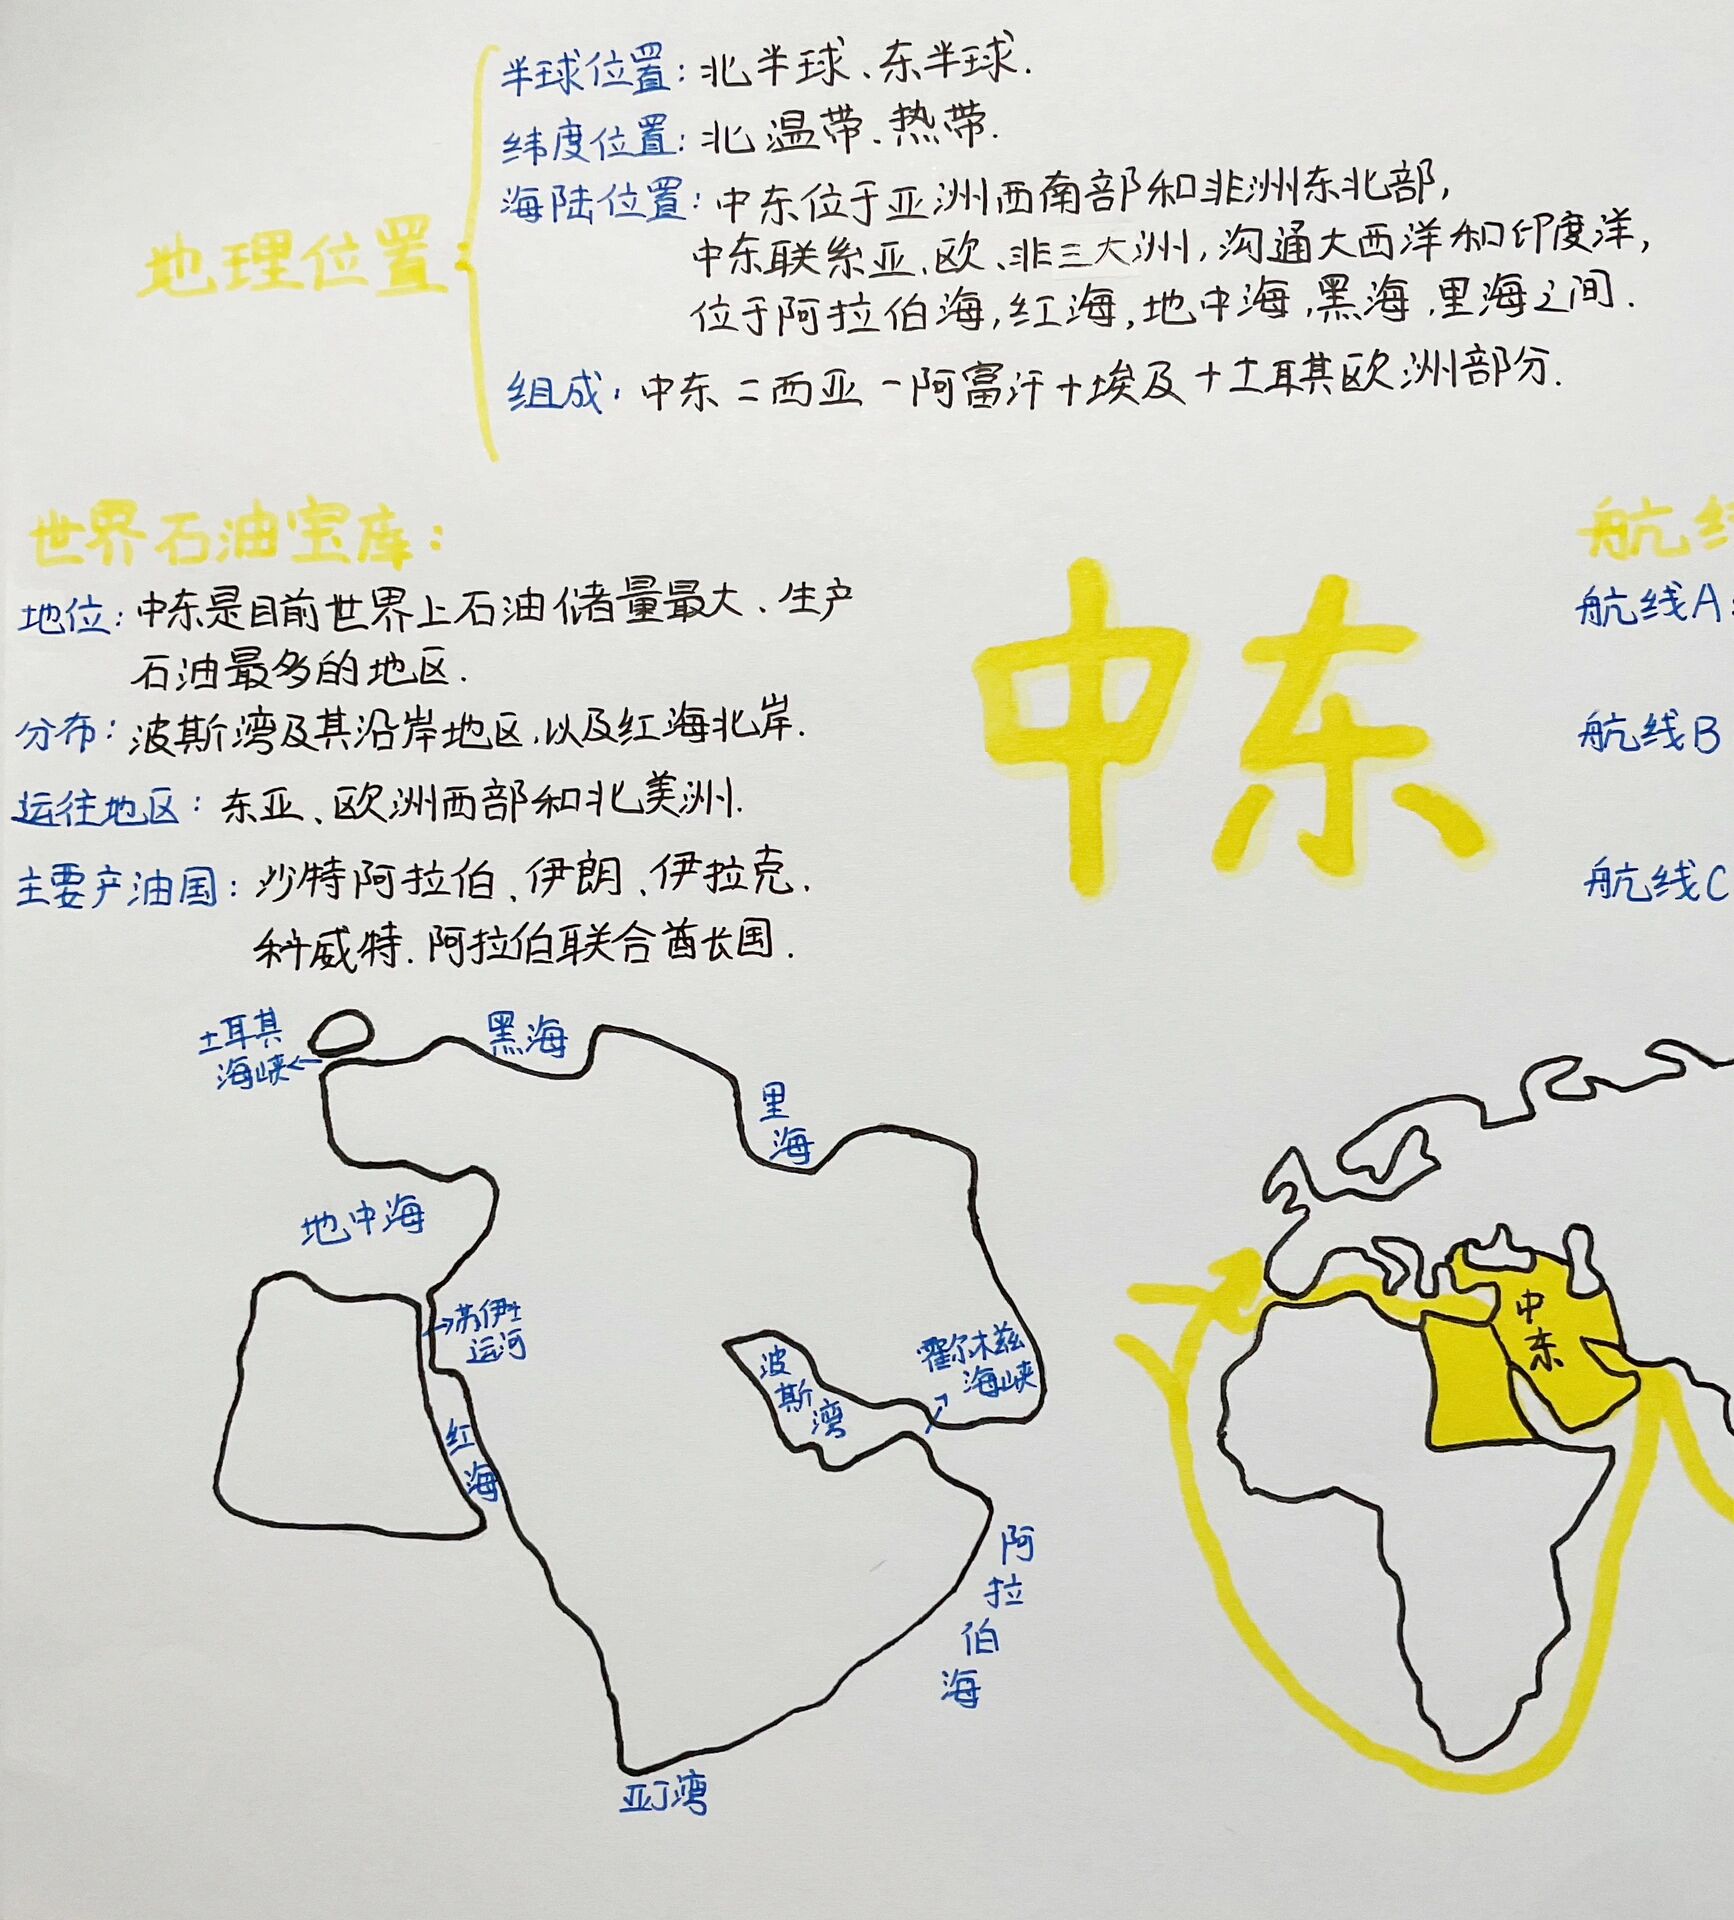 半球位置：北半球、东半球.
纬度位置：北温带、热带.
海陆位置：中东位于亚洲西南部和非洲东北部，
中东联系亚、欧、非三大洲，沟通大西洋和印度洋，
位于阿拉伯海，红海，地中海，黑海，里海之间.
地理位置
组成：中东=西亚-阿富汗+埃及+土耳其欧洲部分.
世界石油宝库：
地位：中东是目前世界上石油储量最大、生产
石油最多的地区.
分布：波斯湾及其沿岸地区，以及红海北岸.
运往地区：东亚、欧洲西部和北美洲.
主要产油国：沙特阿拉伯、伊朗、伊拉克.
科威特.阿拉伯联合酋长国.
中东
航线
航线A：
航线B
航线C
土耳其
海峡
黑海
里海
地中海
苏伊士
运河
红海
波斯湾
霍尔木兹
海峡
阿拉伯海
亚丁湾
中东